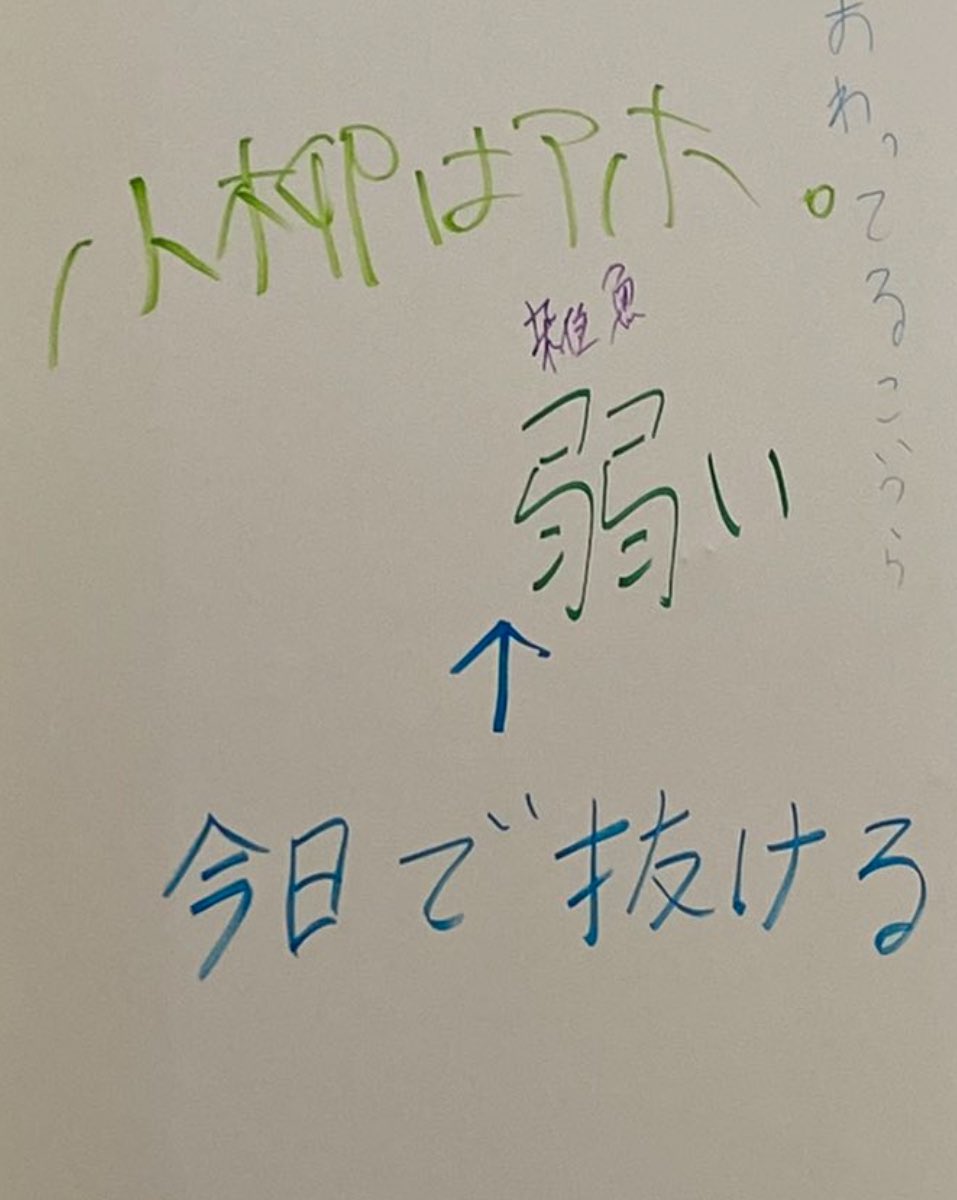 小柳はアホ。
雑魚
弱い
↑
今日で抜ける
おわってるこいつら